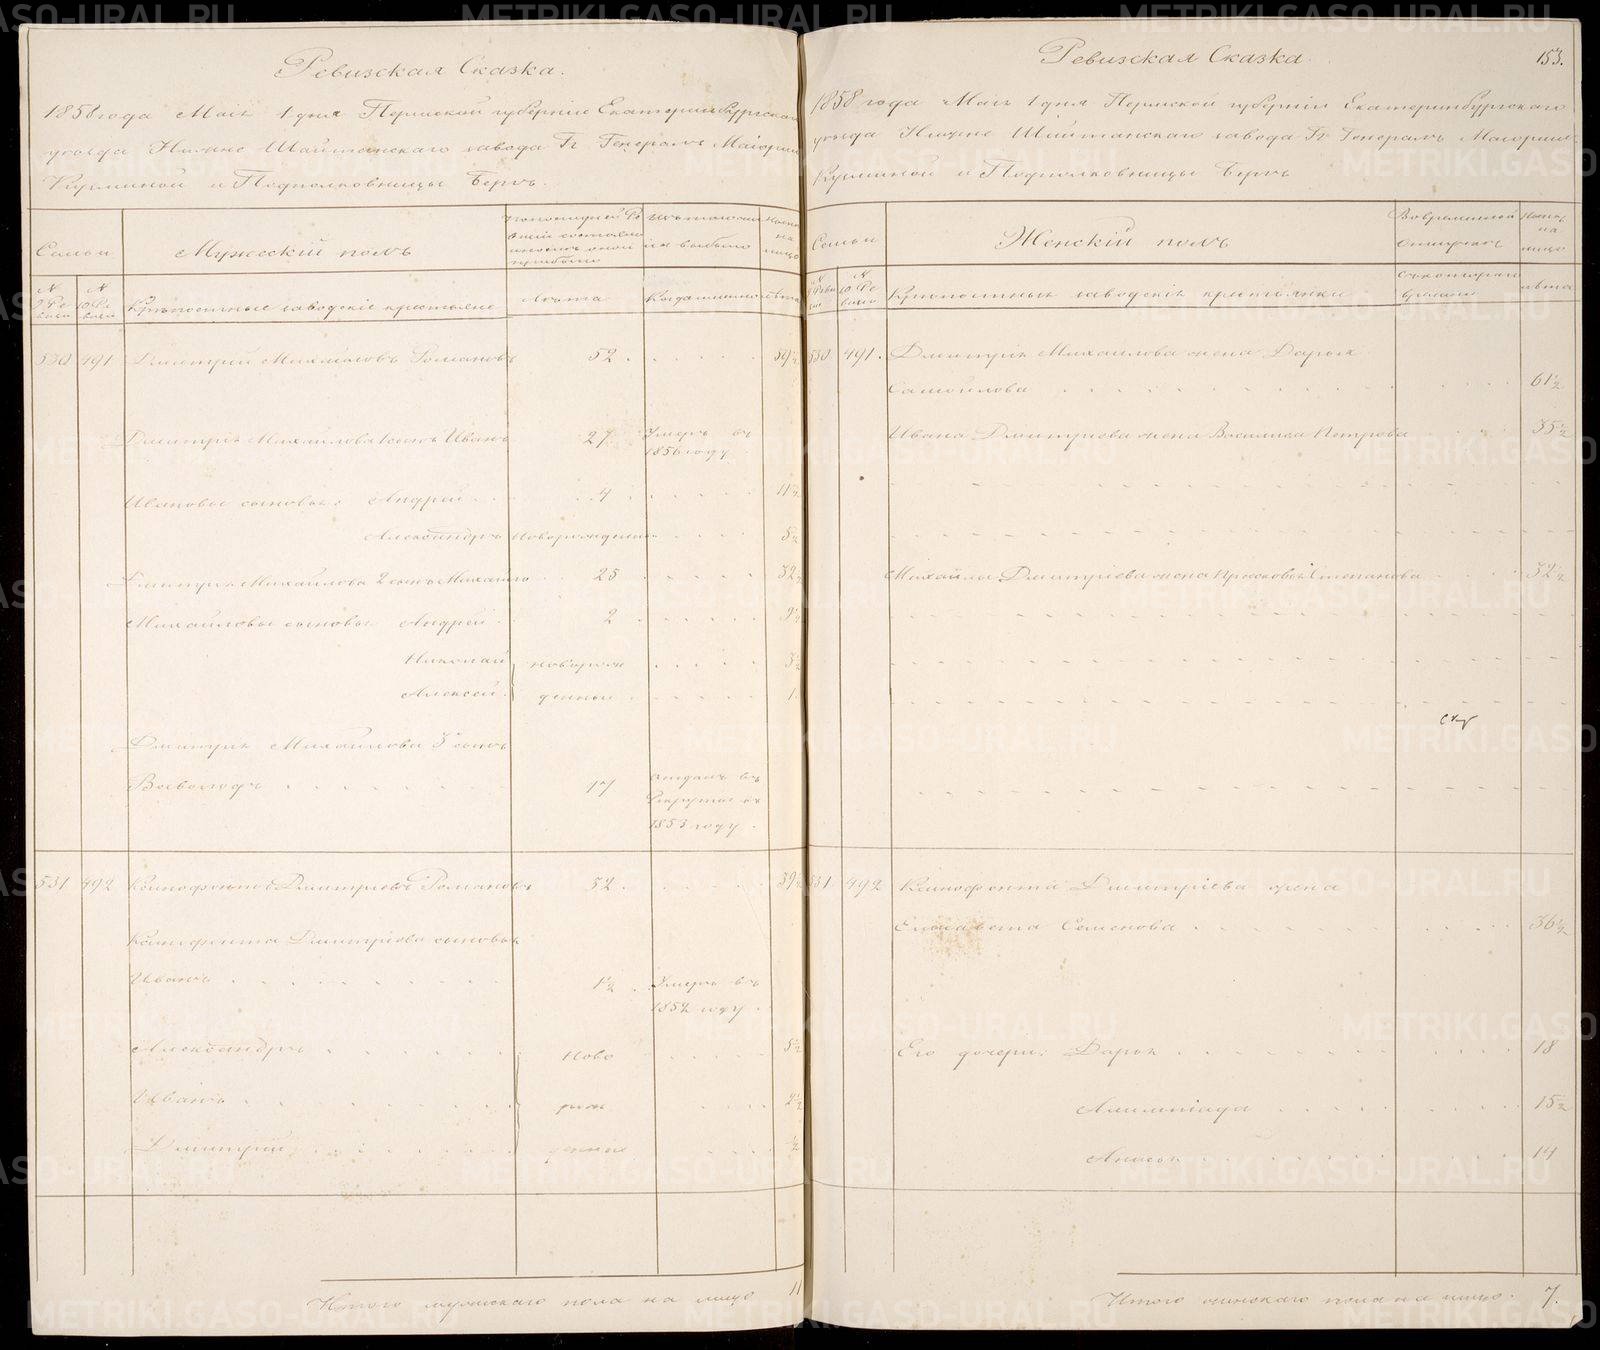 Ревизская Сказка.
1858 года Маія 1 дня Пермской губерніи Екатеринбургскаго
уезда Нижне Шайтанскаго завода Гг Генералъ Маіорши
Кузминой и Подполковницы Бергъ.
Семьи
Мужескій полъ
Изъ того числа выбыло
Ныне на лицо
№ 9 Ревизіи
№ 10 Ревизіи
Крепостные заводскіе крестьяне
Лета
Когда именно
лета
530 491 Дмитрий Михайловъ Романовъ 52 . 59½
Дмитрія Михайлова 1 сынъ Иванъ 27 Умеръ въ
1856 году
Ивановы сыновья: Андрей 4 11½
Александръ новорожденный 5½
Дмитрія Михайлова 2 сынъ Михайло 25 32½
Михайловы сыновья Андрей 2 9½
Николай новорож 3½
Алексей денные 1
Дмитрія Михайлова 3 сынъ
Всеволодъ 17 отданъ въ
Рекруты въ
1853 году.
531 492 Ксенофонтъ Дмитріевъ Романовъ 52. 59½
Ксенофонта Дмитріева сыновья
Иванъ 1½ Умеръ въ
1852 году.
Александръ Ново 5½
Иванъ рож 2½
Дмитрій денные ½
Итого мужскаго пола на лицо 11
Ревизская Сказка.
153.
1858 года Маія 1 дня Пермской губерніи Екатеринбургскаго
уезда Нижне Шайтанскаго завода Гг Генералъ Маіорши
Кузминой и Подполковницы Бергъ
Семьи
Женскій полъ
Во временной отлучкъ
Ныне на лицо
№ 9 Ревизіи
№ 10 Ревизіи
Крепостныя заводскія крестьянки
Съ котораго времени
лета
530 491. Дмитрія Михайлова жена Дарья
Самойлова 61½
Ивана Дмитріева жена Василиса Петрова 35½
Михайлы Дмитріева жена Прасковья Степанова 32½
531 492 Ксенофонта Дмитріева жена
Елизавета Семенова 36½
Его дочери: Дарья 18
Алимпіада 15½
Анисья 14
Итого женскаго пола на лицо. 7.
METRIKI.GASO-URAL.RU